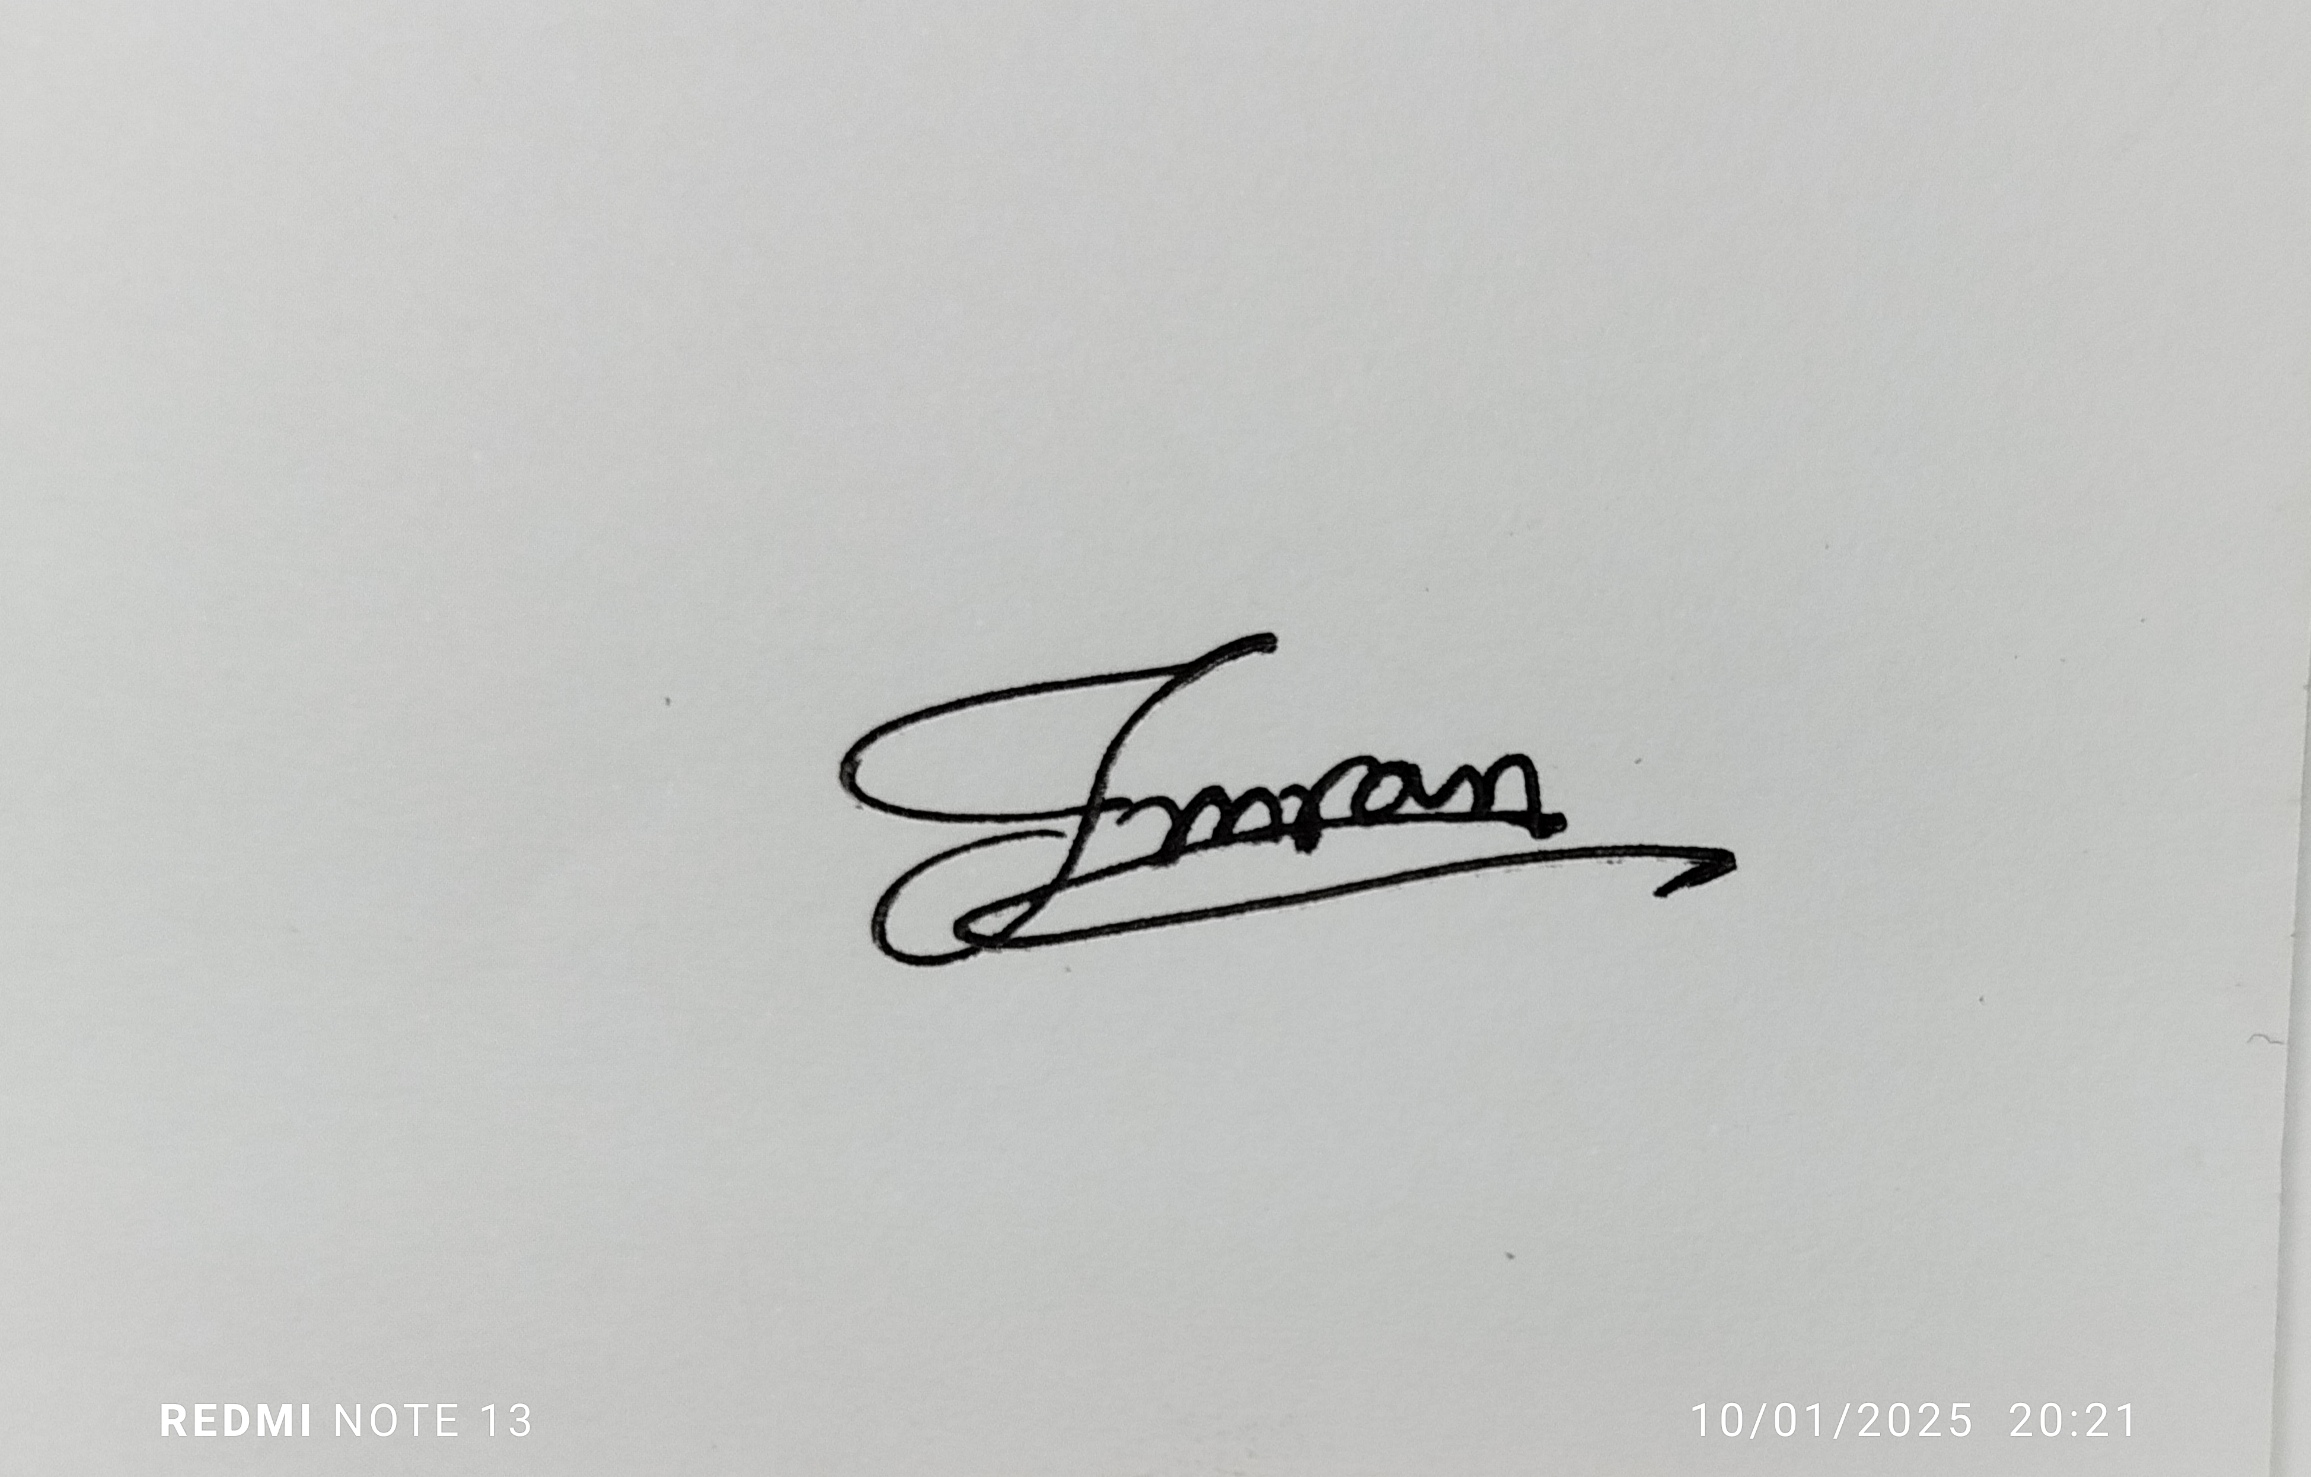 Imran
REDMI NOTE 13
10/01/2025 20:21